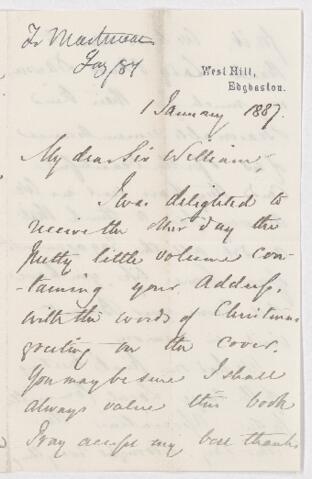 Jan/87
West Hill,
Edgbaston.
1 January 1887.
My dear Sir William,
I was delighted to
receive the other day the
pretty little volume con-
-taining your Address,
with the words of Christmas
greeting on the cover.
You may be sure I shall
always value this book
Pray accept my best thanks